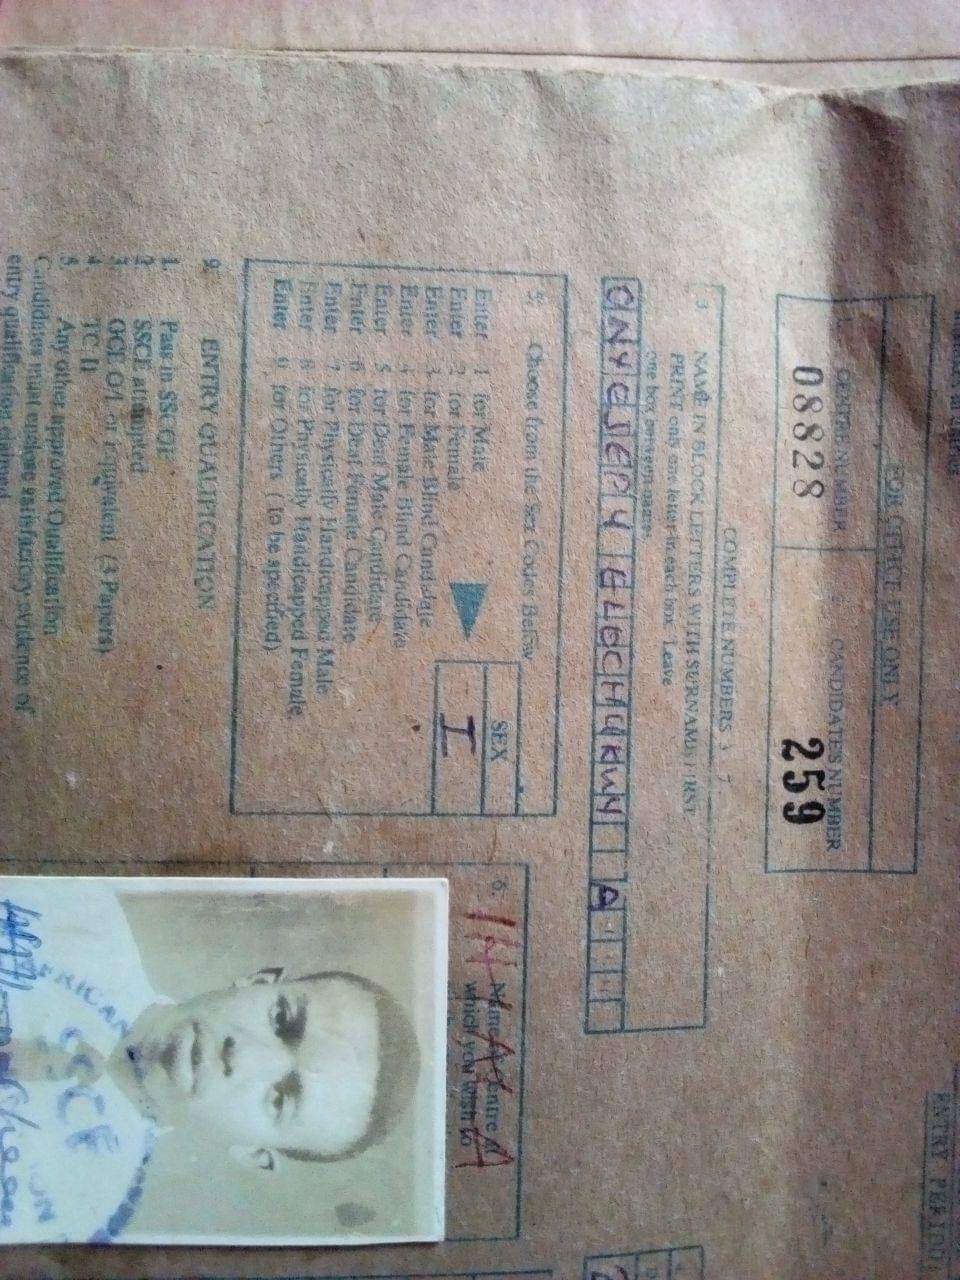 FOR OFFICE USE ONLY
CENTRE NUMBER
CANDIDATES NUMBER
08828
259
ENTRY PERIOD
COMPLETE NUMBERS 3 - 7
NAME IN BLOCK LETTERS WITH SURNAME FIRST
PRINT only one letter in each box. Leave
one box between names.
5. Choose from the Sex Codes Below
SEX
I
Enter 1 for Male
Enter 2 for Female
Enter 3 for Male Blind Candidate
Enter 4 for Female Blind Candidate
Enter 5 for Deaf Male Candidate
Enter 6 for Deaf Female Candidate
Enter 7 for Physically Handicapped Male
Enter 8 for Physically Handicapped Female
Enter 9 for Others (To be specified)
6. Name Centre at
which you wish to
9. ENTRY QUALIFICATION
1. Pass in SSCE
2. SSCE attempted
3. GCE O/L or Equivelent (3 Papers)
4. TC II
5. Any other approved Qualification
Candidates must enclose satisfactory evidence of
entry qualification claimed
SSCE